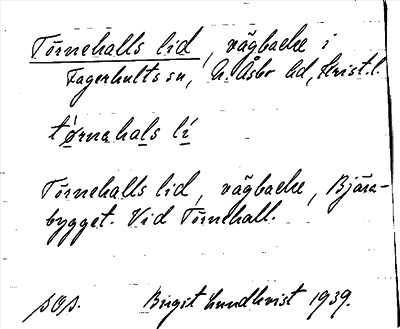 Törnehalls lid, vägbacke i
Fagerhults sn, N. Åsbo hd, Krist. l.
tø̀rnahals lí
Törnehalls lid, vägbacke, Bjära-
bygget. Vid Törnehall.
pOp. Birgit Lundkvist 1939.